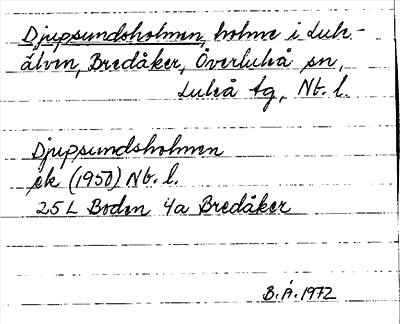 Djupsundsholmen, holme i Lule-
älven, Bredåker, Överluleå sn,
Luleå tg, Nb. l.
Djupsundsholmen
ek (1950) Nb. l.
25 L Boden 4a Bredåker
B.Å. 1972